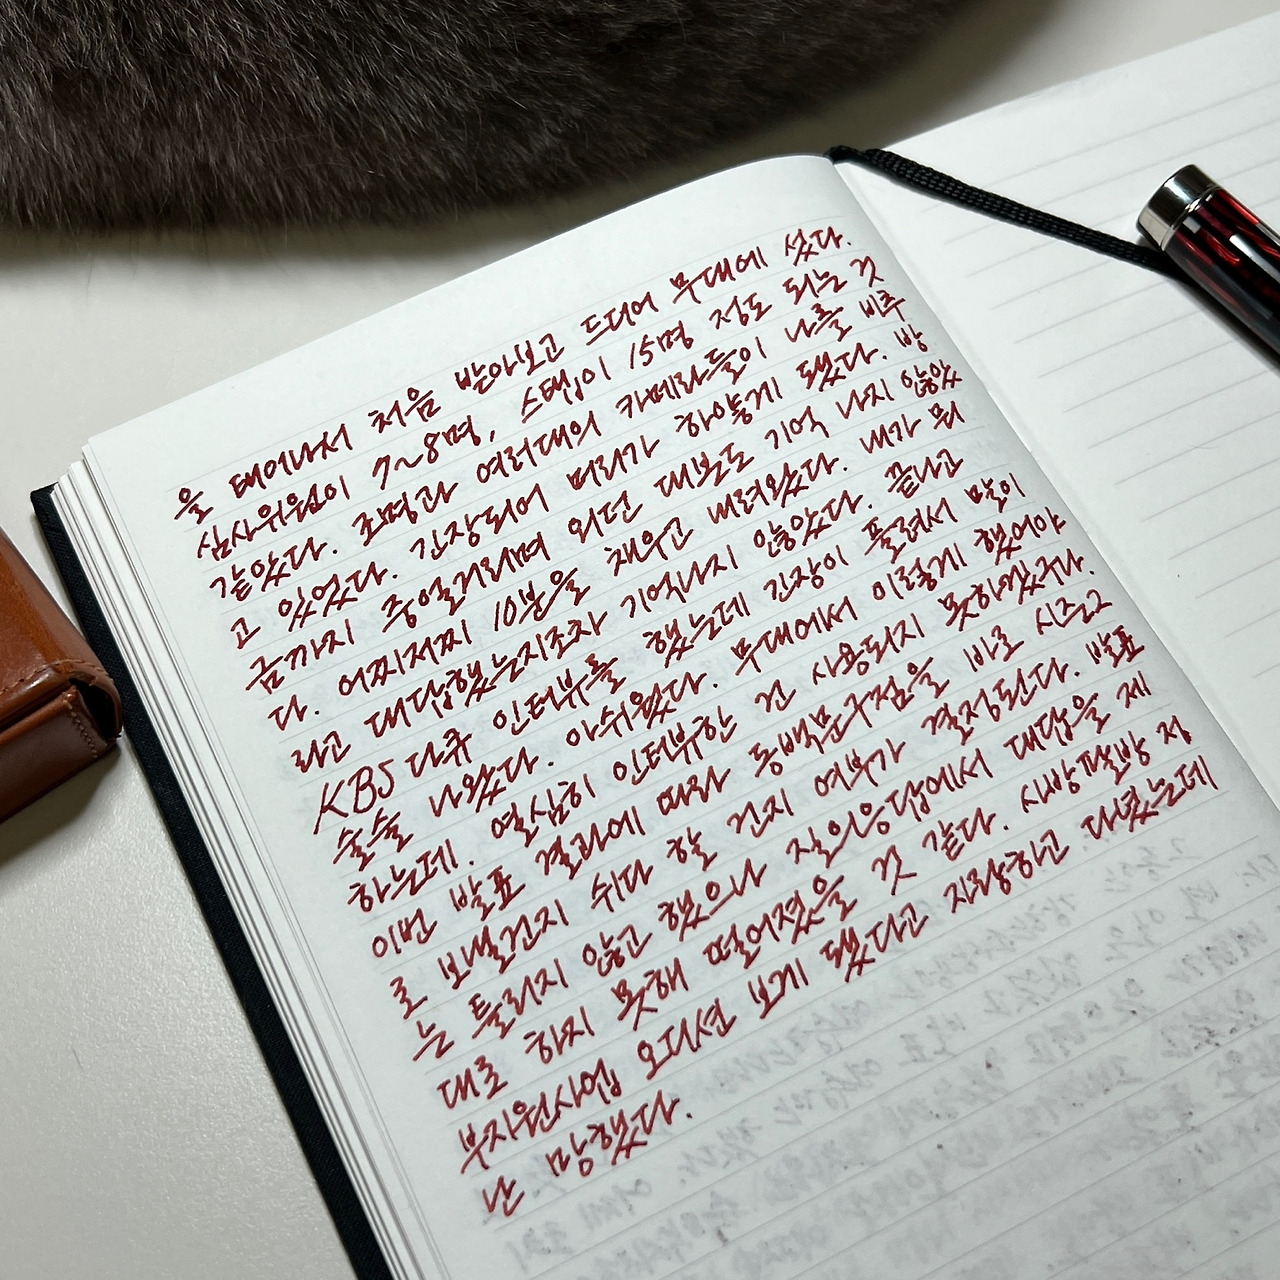 을 태어나서 처음 받아보고 드디어 무대에 섰다.
심사위원이 7~8명, 스탭이 15명 정도 되는 것
같았다. 조명과 여러대의 카메라들이 나를 비추
고 있었다. 긴장되어 머리가 하얗게 됐다. 방
금까지 중얼거리며 외던 대본도 기억 나지 않았
다. 어찌저찌 10분을 채우고 내려왔다. 내가 뭐
라고 대답했는지조차 기억나지 않았다. 끝나고
KBS 다큐 인터뷰를 했는데 긴장이 풀려서 말이
술술 나왔다. 아쉬웠다. 무대에서 이렇게 했어야
하는데. 열심히 인터뷰한 건 사용되지 못하였구나.
이번 발표 결과에 따라 동백문구점을 바로 시즌2
로 보낼건지 쉬다 할 건지 여부가 결정된다. 발표
는 틀리지 않고 했으나 질의응답에서 대답을 제
대로 하지 못해 떨어졌을 것 같다. 사방팔방 정
부지원사업 오디션 보게 됐다고 자랑하고 다녔는데
난 망했다.